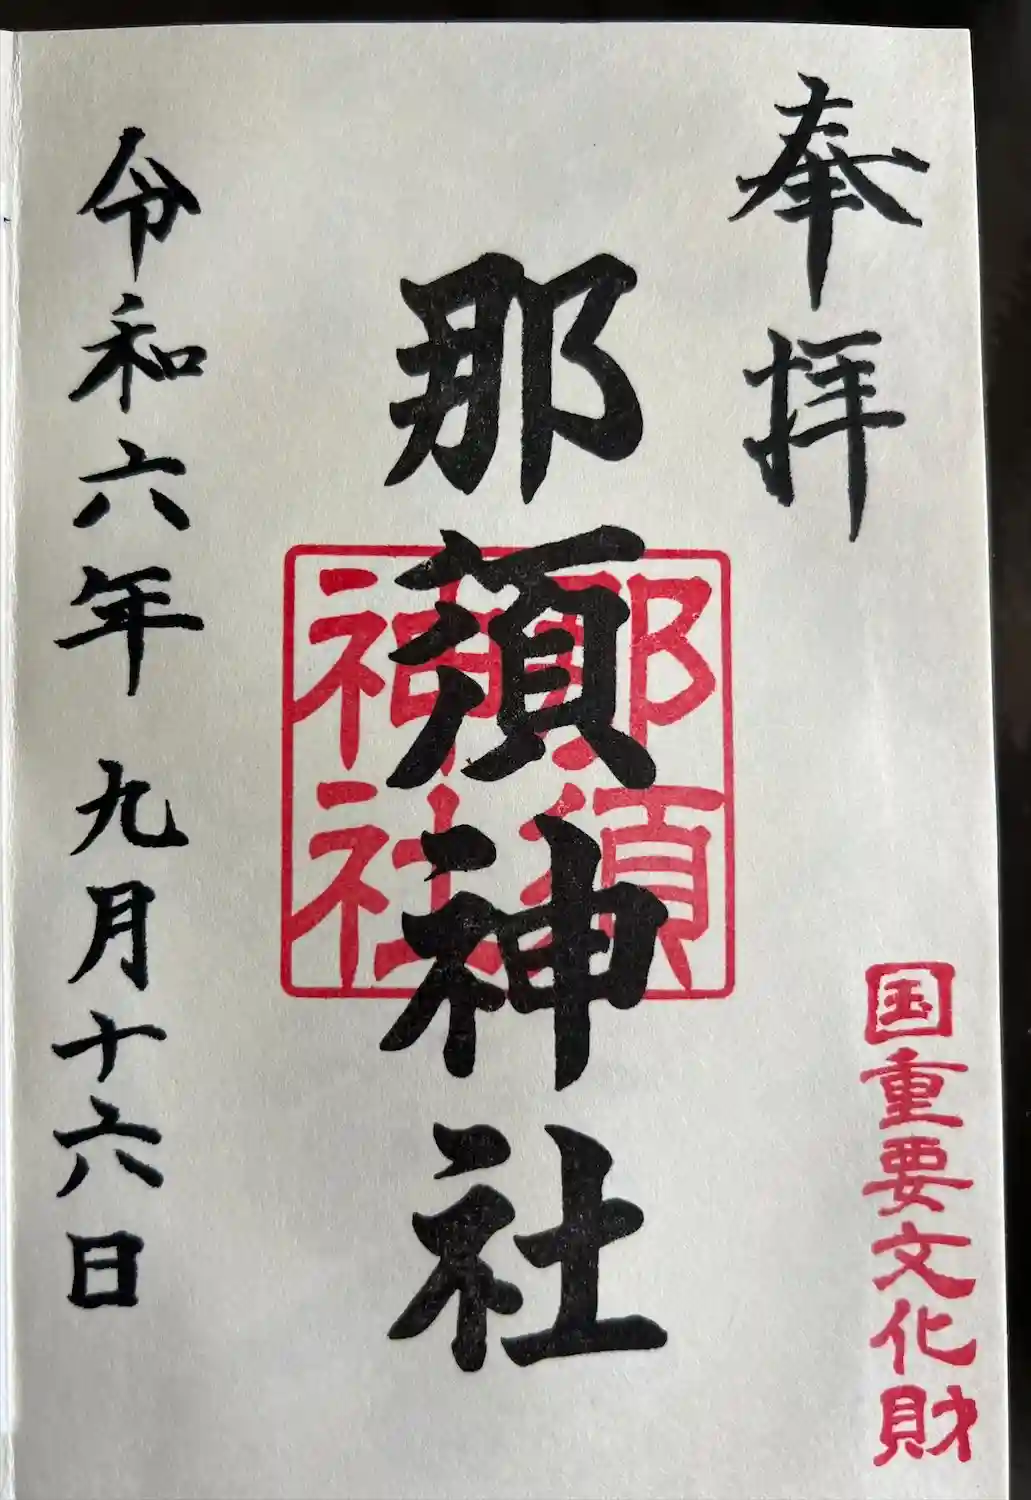 奉拝
国重要文化財
那須神社
那須
神社
令和六年 九月十六日